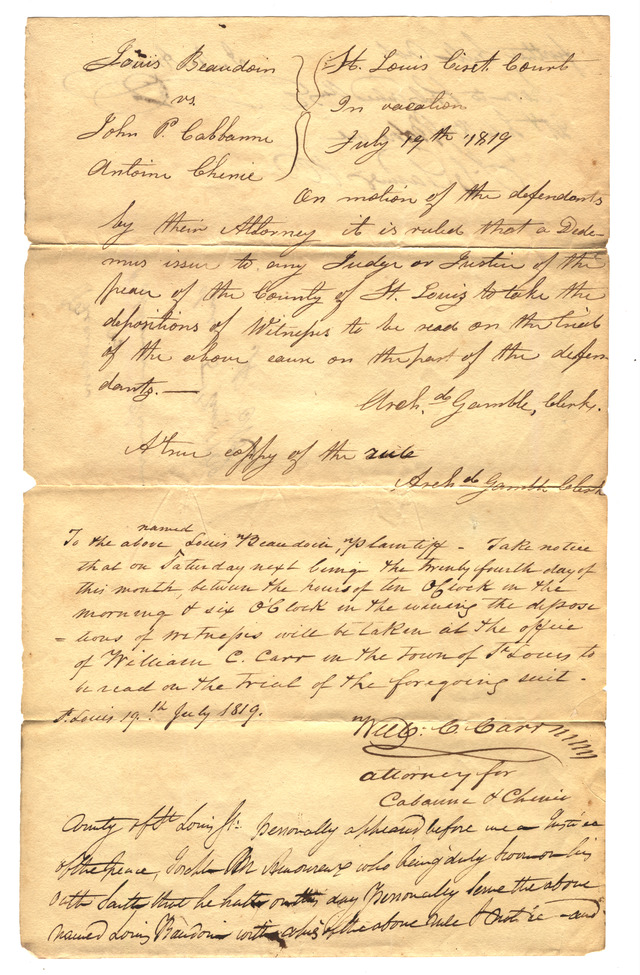 Louis Beaudoin
vs.
John P. Cabbanne
Antoine Chenie
St. Louis Circt. Court
In vacation
July 19th 1819
On motion of the defendants
by their Attorney it is ruled that a Dedi-
mus issue to any Judge or Justice of the
peace of the County of St. Louis to take the
depositions of Witnesses to be read on the trial
of the above cause on the part of the defen
dants. —
Archd. Gamble, Clerk.
A true coppy of the rule
Archd Gamble Clerk
named
To the above Louis Beaudoin, Plaintiff - Take notice
that on Saturday next being the twenty fourth day of
this month, between the hours of ten O'Clock in the
morning & six O'Clock in the evening the deposi
- tions of witnesses will be taken at the office
of William C. Carr in the town of St Louis to
be read on the trial of the foregoing suit -
St. Louis 19.th July 1819.
Will. C. Carr
attorney for
Cabanne & Chenie
County of St Louis Sc: Personally appeared before me a Justice
of the peace, Joseph M Amoureux who being duly sworn on his
oath saith that he hath on this day Personally serve the above
named Louis Baudoin with copies of the above rule & notice - and